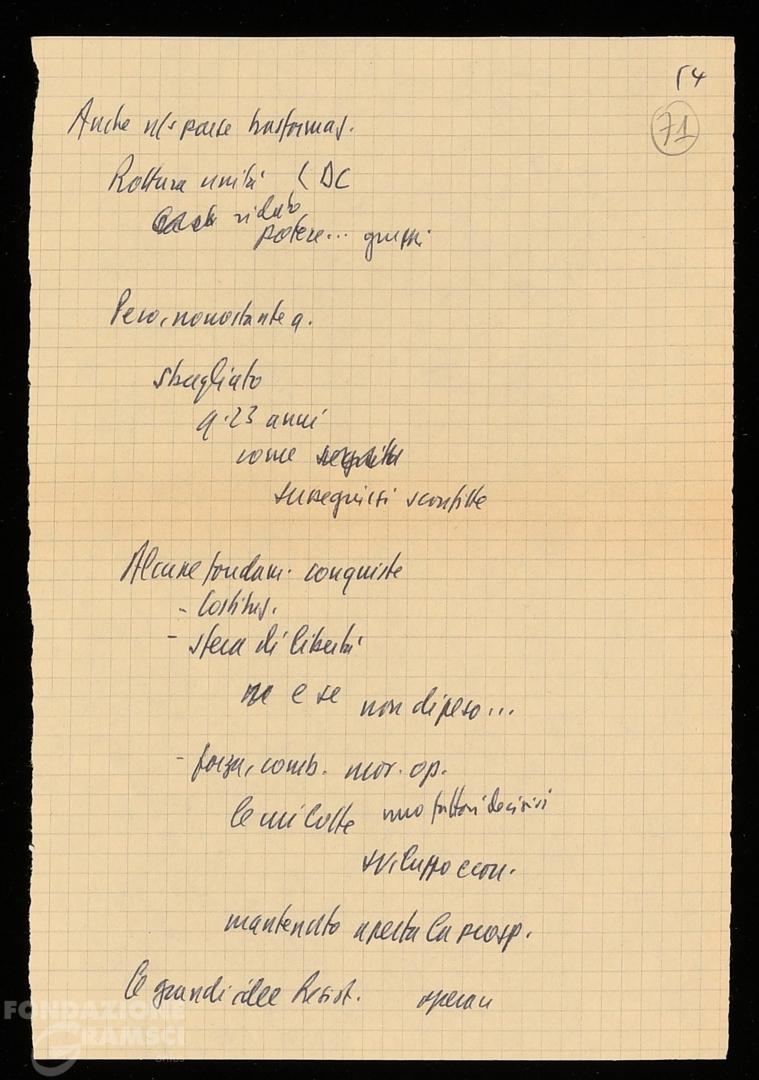 54
71
Anche n/s paese trasformaz.
Rottura unità < DC
ridato
potere... gruppi
Però, nonostante q.
sbagliato
q. 23 anni
come
susseguirsi sconfitte
Alcune fondam. conquiste
- Costituz.
- sfera di libertà
e se non dipeso...
- forza, comb. mov. op.
le cui lotte uno fattori decisivi
sviluppo econ.
mantenuto aperta la prosp.
le grandi idee Resist. operan
FONDAZIONE
GRAMSCI
onlus